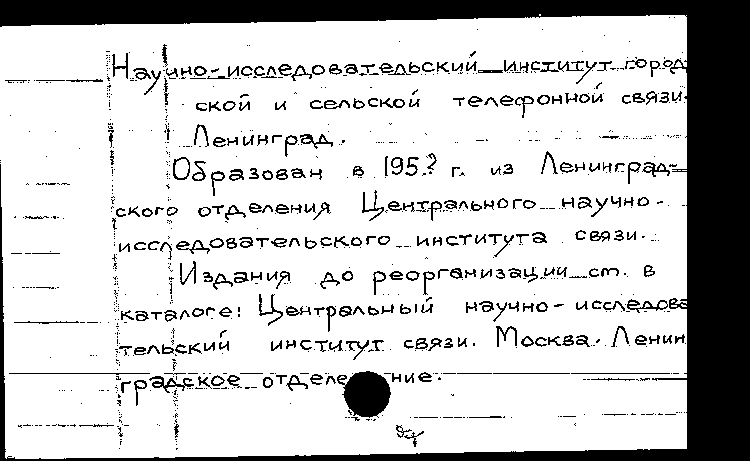 Научно-исследовательский институт город
ской и сельской телефонной связи.
Ленинград.
Образован в 195? г. из Ленинград-
ского отделения Центрального научно-
исследовательского института связи.
Издания до реорганизации см. в
каталоге: Центральный научно-исследова
тельский институт связи. Москва. Ленин
градское отделение.